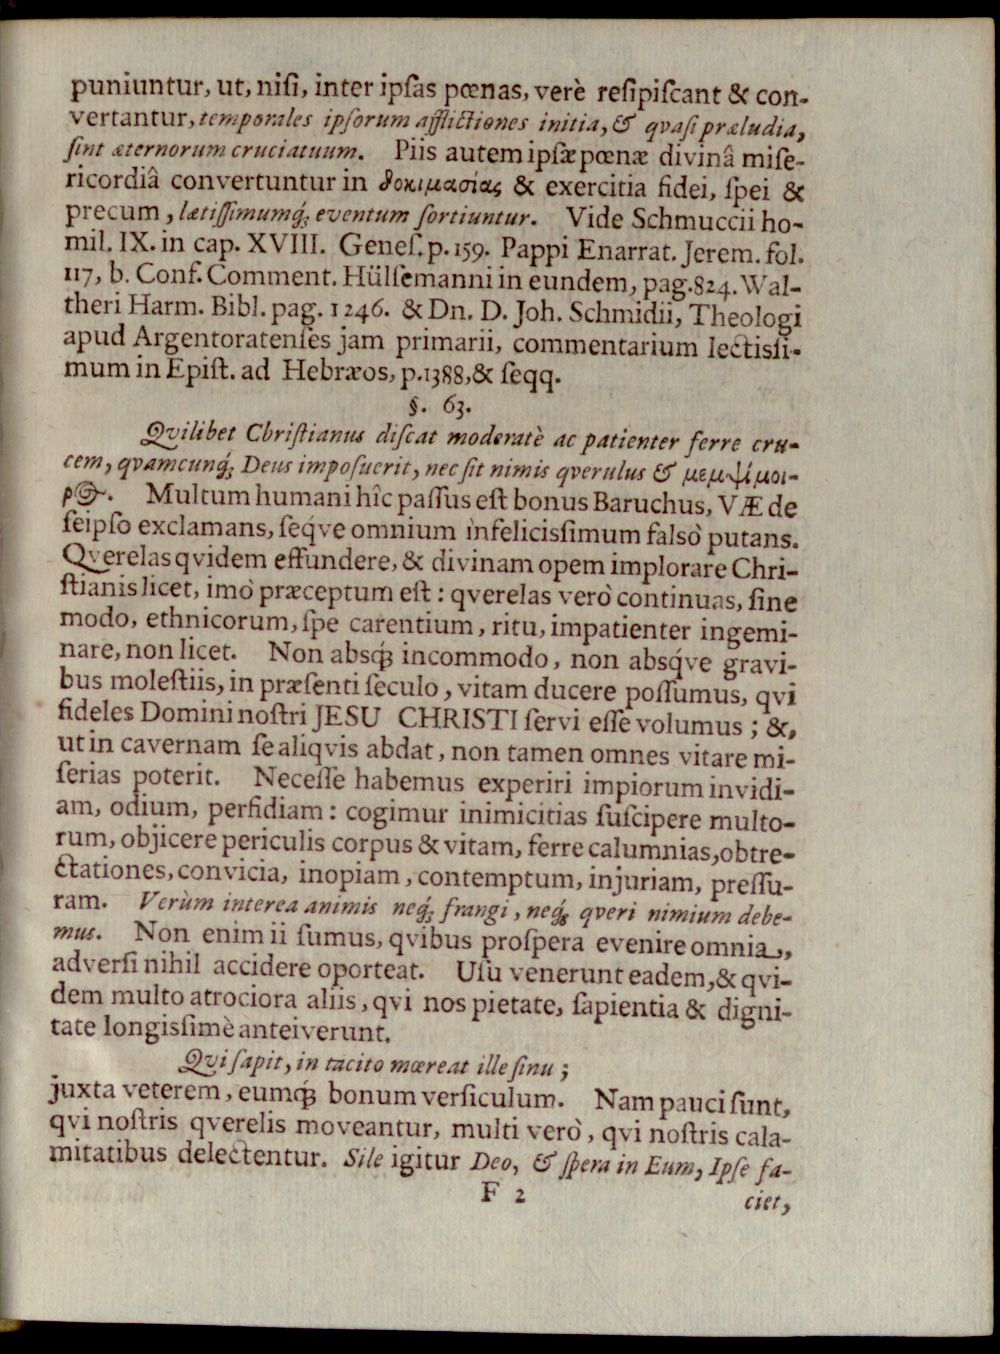 puniuntur, ut, niſi, inter ipſas pœnas, verè reſipiſcant & con-
vertantur, temporales ipſorum afflictiones initia, & qvaſi præludia,
ſint æternorum cruciatuum. Piis autem ipſæ pœnæ divinâ miſe-
ricordiâ convertuntur in δοκιμασίας & exercitia fidei, ſpei &
precum, lætiſſimumq́; eventum ſortiuntur. Vide Schmuccii ho-
mil. IX. in cap. XVIII. Geneſ. p. 159. Pappi Enarrat. Jerem. fol.
117, b. Conf. Comment. Hülſemanni in eundem, pag. 824. Wal-
theri Harm. Bibl. pag. 1246. & Dn. D. Joh. Schmidii, Theologi
apud Argentoratenſes jam primarii, commentarium lectisſi-
mum in Epiſt. ad Hebræos, p. 1388, & ſeqq.
§. 63.
Qvilibet Chriſtianus diſcat moderatè ac patienter ferre cru-
cem, qvamcunq́; Deus impoſuerit, nec ſit nimis qverulus & μεμψίμοι-
ρϘ. Multum humani hîc paſſus eſt bonus Baruchus, VÆ de
ſeipſo exclamans, ſeq́ve omnium infelicisſimum falsò putans.
Qverelas qvidem effundere, & divinam opem implorare Chri-
ſtianis licet, imò præceptum eſt: qverelas verò continuas, ſine
modo, ethnicorum, ſpe carentium, ritu, impatienter ingemi-
nare, non licet. Non absq́; incommodo, non absq́ve gravi-
bus moleſtiis, in præſenti ſeculo, vitam ducere poſſumus, qvi
fideles Domini noſtri JESU CHRISTI ſervi eſſe volumus; &,
ut in cavernam ſe aliqvis abdat, non tamen omnes vitare mi-
ſerias poterit. Neceſſe habemus experiri impiorum invidi-
am, odium, perfidiam: cogimur inimicitias ſuſcipere multo-
rum, objicere periculis corpus & vitam, ferre calumnias, obtre-
ctationes, convicia, inopiam, contemptum, injuriam, preſſu-
ram. Verùm interea animis neq́; frangi, neq́; qveri nimium debe-
mus. Non enim ii ſumus, qvibus proſpera evenire omnia,
adverſi nihil accidere oporteat. Uſu venerunt eadem, & qvi-
dem multo atrociora aliis, qvi nos pietate, ſapientia & digni-
tate longisſimè anteiverunt.
Qvi ſapit, in tacito mœreat ille ſinu;
juxta veterem, eumq́; bonum verſiculum. Nam pauci ſunt,
qvi noſtris qverelis moveantur, multi verò, qvi noſtris cala-
mitatibus delectentur. Sile igitur Deo, & ſpera in Eum, Ipſe fa-
F 2
ciet,